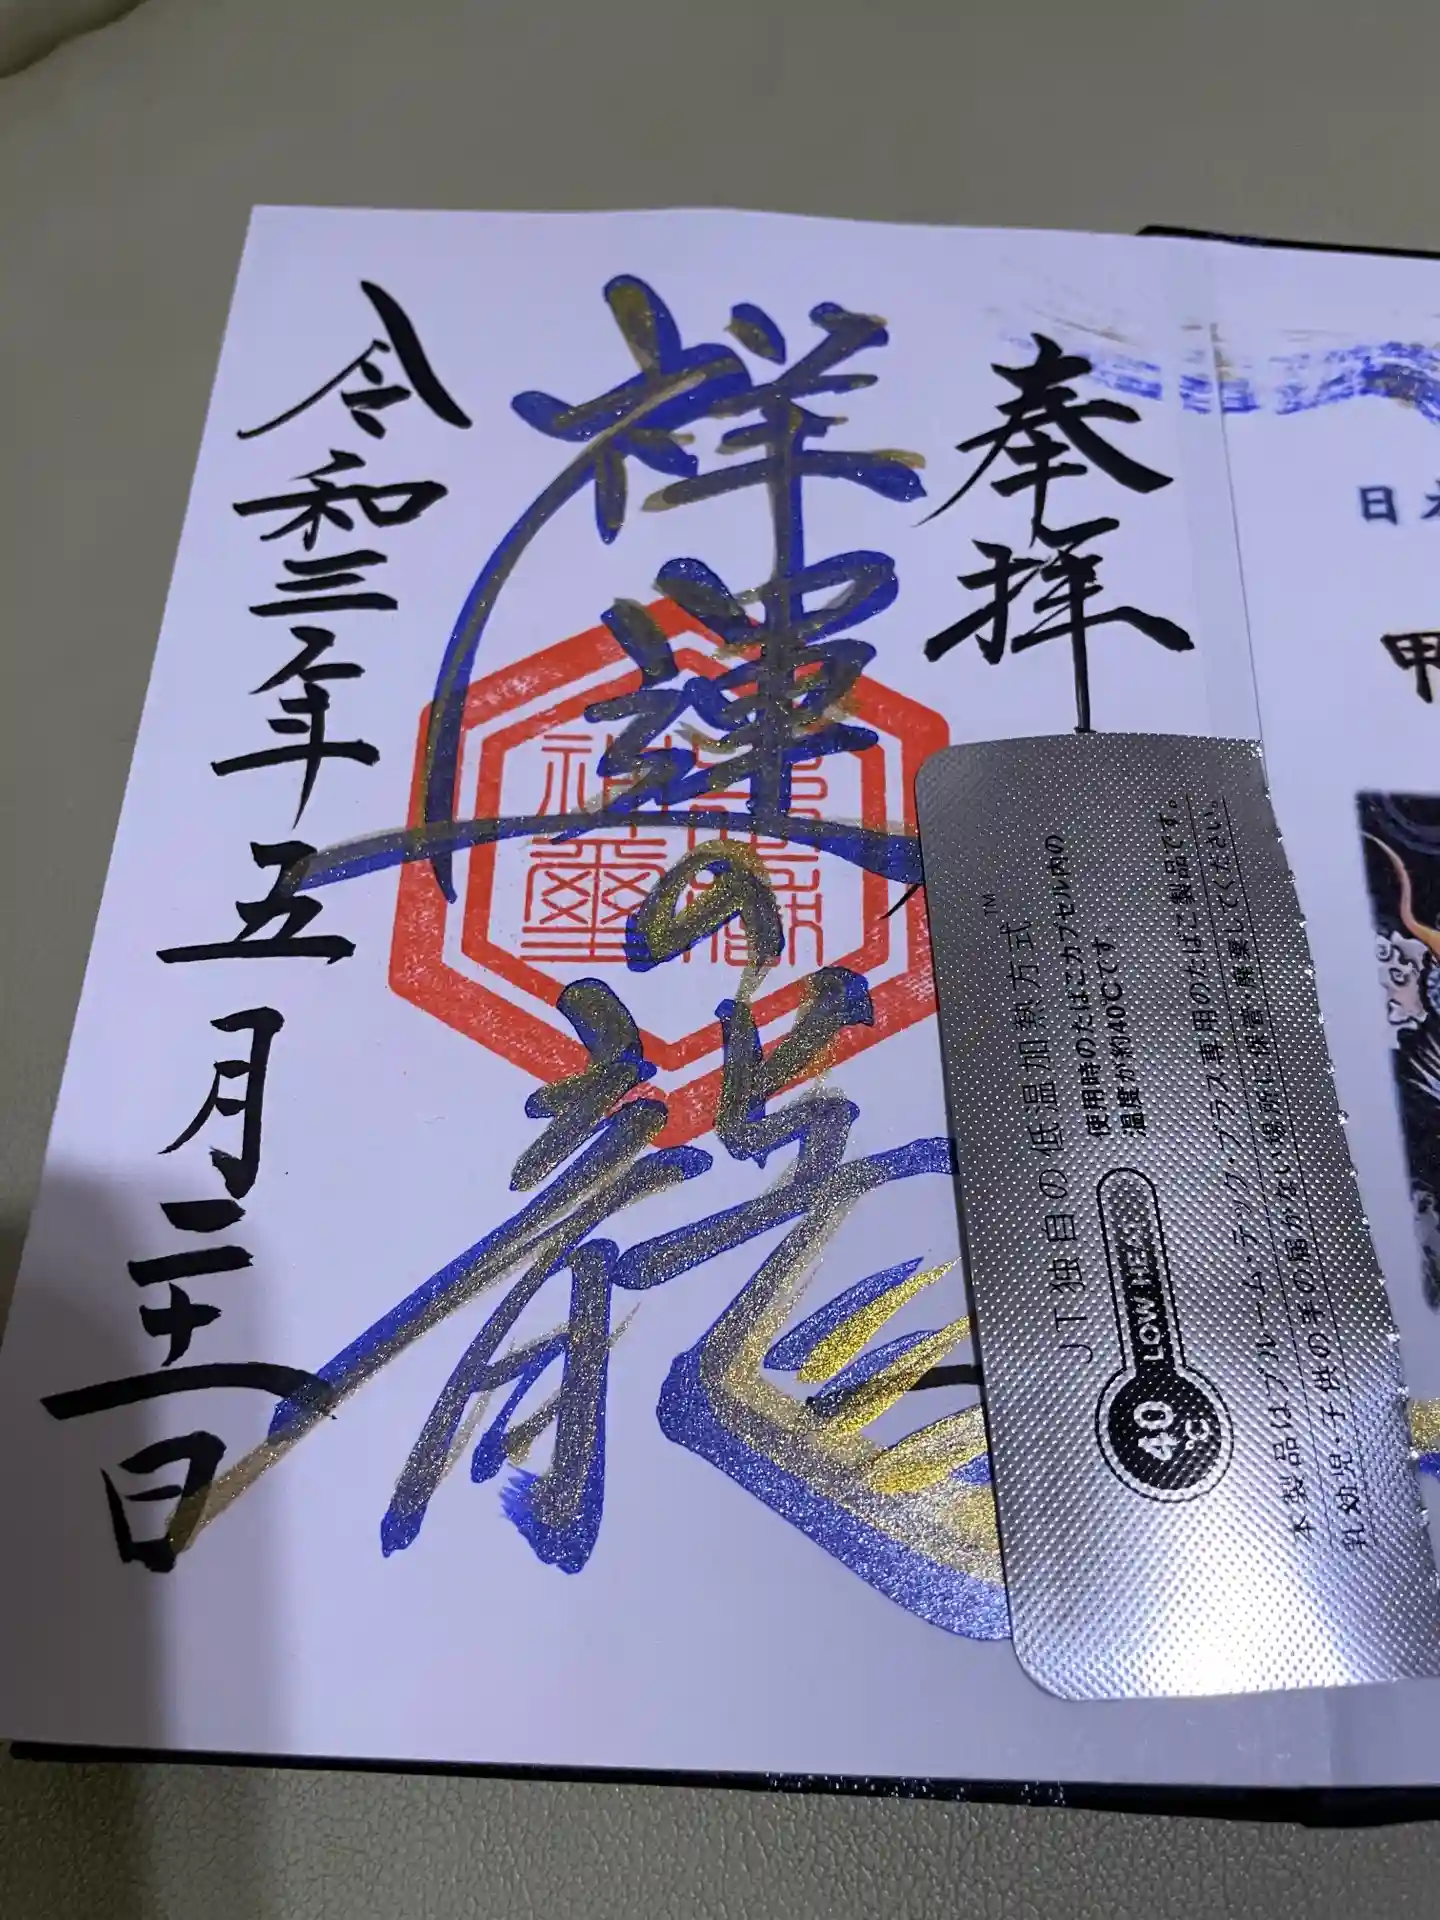 奉拝
祥運の龍
令和三年五月二十一日
JT独自の低温加熱方式™
使用時のたばこカプセル内の
温度が約40℃です。
40℃ LOW HEAT
本製品はプルーム・テック・プラス専用のたばこ製品です。
乳幼児・子供の手の届かない場所に保管・廃棄してください。
日
甲